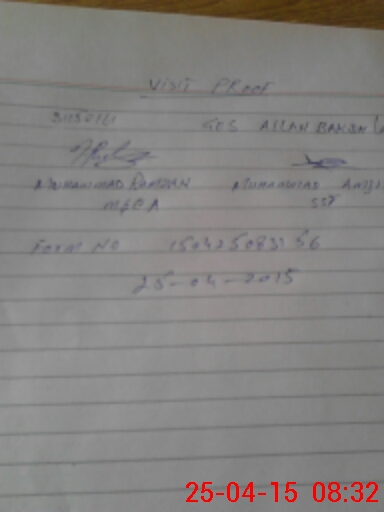 VISIT PROOF
GES ALLAH BAKSH
MUHAMMAD RAMZAN MUHAMMAD
MECA SST
FORM NO 15042508356
25-04-2015
25-04-15 08:32